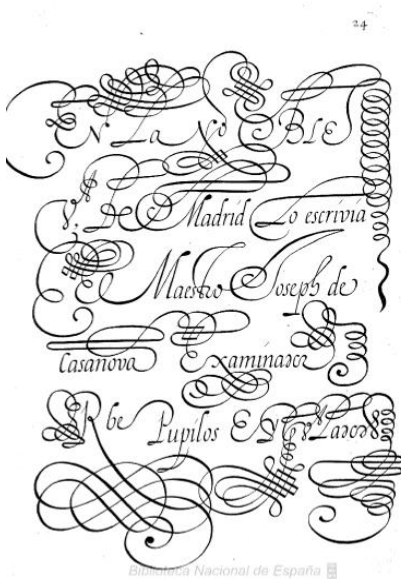 24
EN La NoBLE
V.ª De Madrid Lo escrivia
el Maestro Joseph de
Casanova Examinador
Pupilos EN
Biblioteca Nacional de España